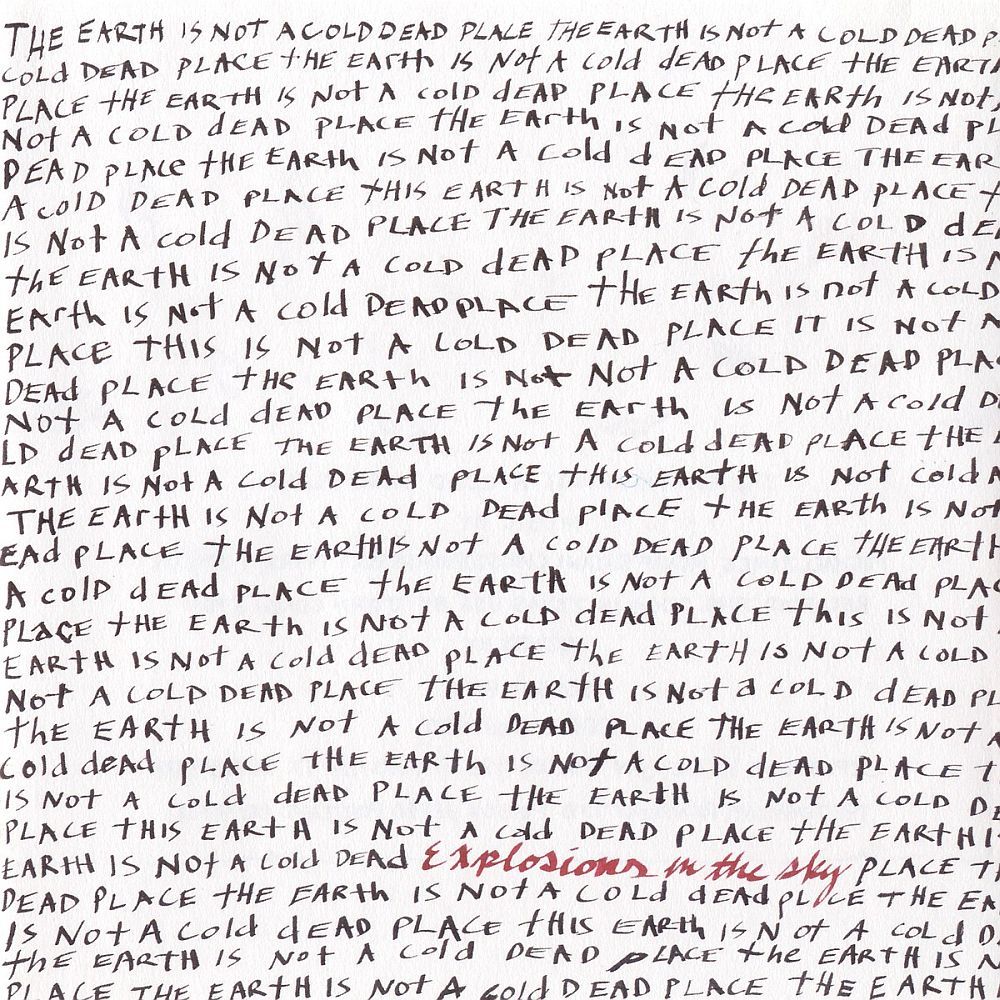 THE EARTH IS NOT A COLD DEAD PLACE THE EARTH IS NOT A COLD DEAD P
COLd DEAD PLACE tHE EARth IS NOt A COld dEAD PLACE tHE EARTH
PLACE tHE EARTH IS NOt A COlD dEAD PLACE tHE EARth IS NOt
NOt A COLD dEAD PLACE tHE EARth IS NOt A COld DEAD PL
DEAD PLACe tHE EARth IS NOt A COld dEAD PLACE THE EAR
A COlD DEAD PLACE tHIS EARTH IS NOt A COld DEAD PLACE t
IS NOt A COld DEAD PLACE THE EARtH IS NOt A COLD dEA
tHE EARtH IS NOt A COLD dEAD PLACE the EARTH IS N
EARth IS NOt A COld DEAD PLACE tHE EARth IS nOt A COLD
PLACE tHIS IS NOt A COLD DEAD PLACE IT IS NOt A
DEAd PLACE tHe EARth IS NOt NOt A COLD DEAD PLA
NOt A COLd dEAD PLACE the EARth IS NOt A COld D
LD dEAD pLACE THE EARTH IS NOt A COLd dEAD PLACE tHE
ARTH IS NOt A COld DEAd PLACE tHIS EARTH IS NOt COld A
THE EARtH IS NOt A COLD DEAd PlACE tHE EARth IS NOt
EAd PLACE tHE EARtH IS NOt A COlD DEAD PLACE tHE EARtH
A COlD dEAd PLACE the EARTH IS NOt A COLD DEAd PLAC
PLaCE tHE EARth IS NOt A COLD dEAd PLACE this IS NOt
EARTH IS NOt A COld dEAD pLACE the EARTH IS NOt A COLD
NOt A COLD DEAD PLACE tHE EARTH IS NOt a COLD dEAD PL
tHE EARTH IS NOt A COld DEAD PLACE THE EARTH IS NOt A
COld dEAD PLACE tHE EARth IS NOt A COLD dEAD PLACE t
IS NOt A COLd dEAD PLACE tHE EARtH IS NOt A COLD DE
PLACE tHIS EARtH IS NOt A COld DEAD PLACE tHE EARTH I
EARTH IS NOt A COld DEAD Explosions in the sky PLACE TH
DEAD PLACE tHE EARth IS NOt A COLd dEAd PLACE THE EA
IS NOt A COld dEAD PLACE tHIS EARth IS NOt A COLd D
tHE EARTH IS NOt A COld DEAD PLACE the EARTH IS N
PLACE THE EARTH IS NOt A COld DEAD PLACE THE EARTH